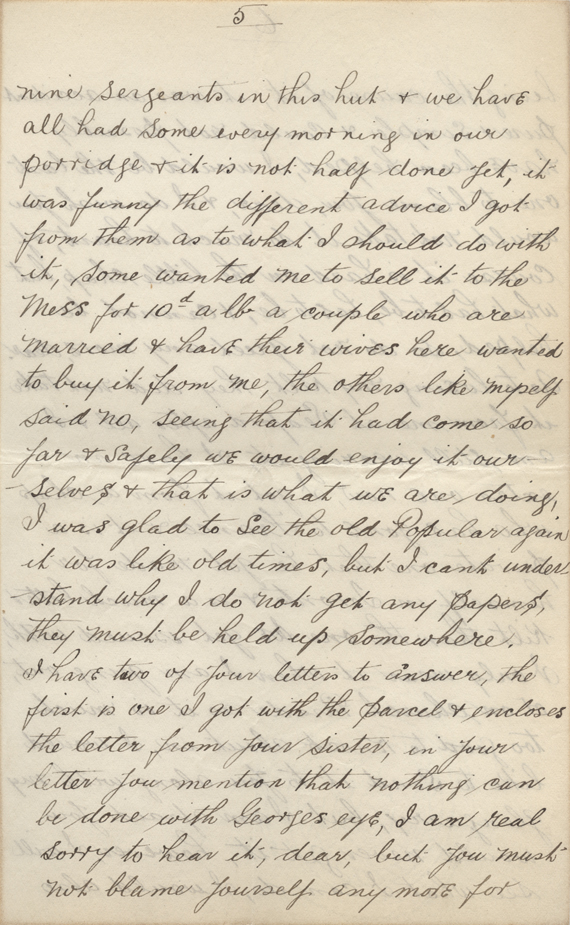 5
nine sergeants in this hut & we have
all had some every morning in our
porridge & it is not half done yet, it
was funny the different advice I got
from them as to what I should do with
it, some wanted me to sell it to the
Mess for 10d a lb a couple who are
married & have their wives here wanted
to buy it from me, the others like myself
said no, seeing that it had come so
far & safely we would enjoy it our-
-selves & that is what we are doing,
I was glad to see the old Popular again
it was like old times, but I cant under
-stand why I do not get any papers,
they must be held up somewhere.
I have two of your letters to answer, the
first is one I got with the parcel & encloses
the letter from your sister, in your
letter you mention that nothing can
be done with Georges eye, I am real
sorry to hear it, dear, but you must
not blame yourself any more for